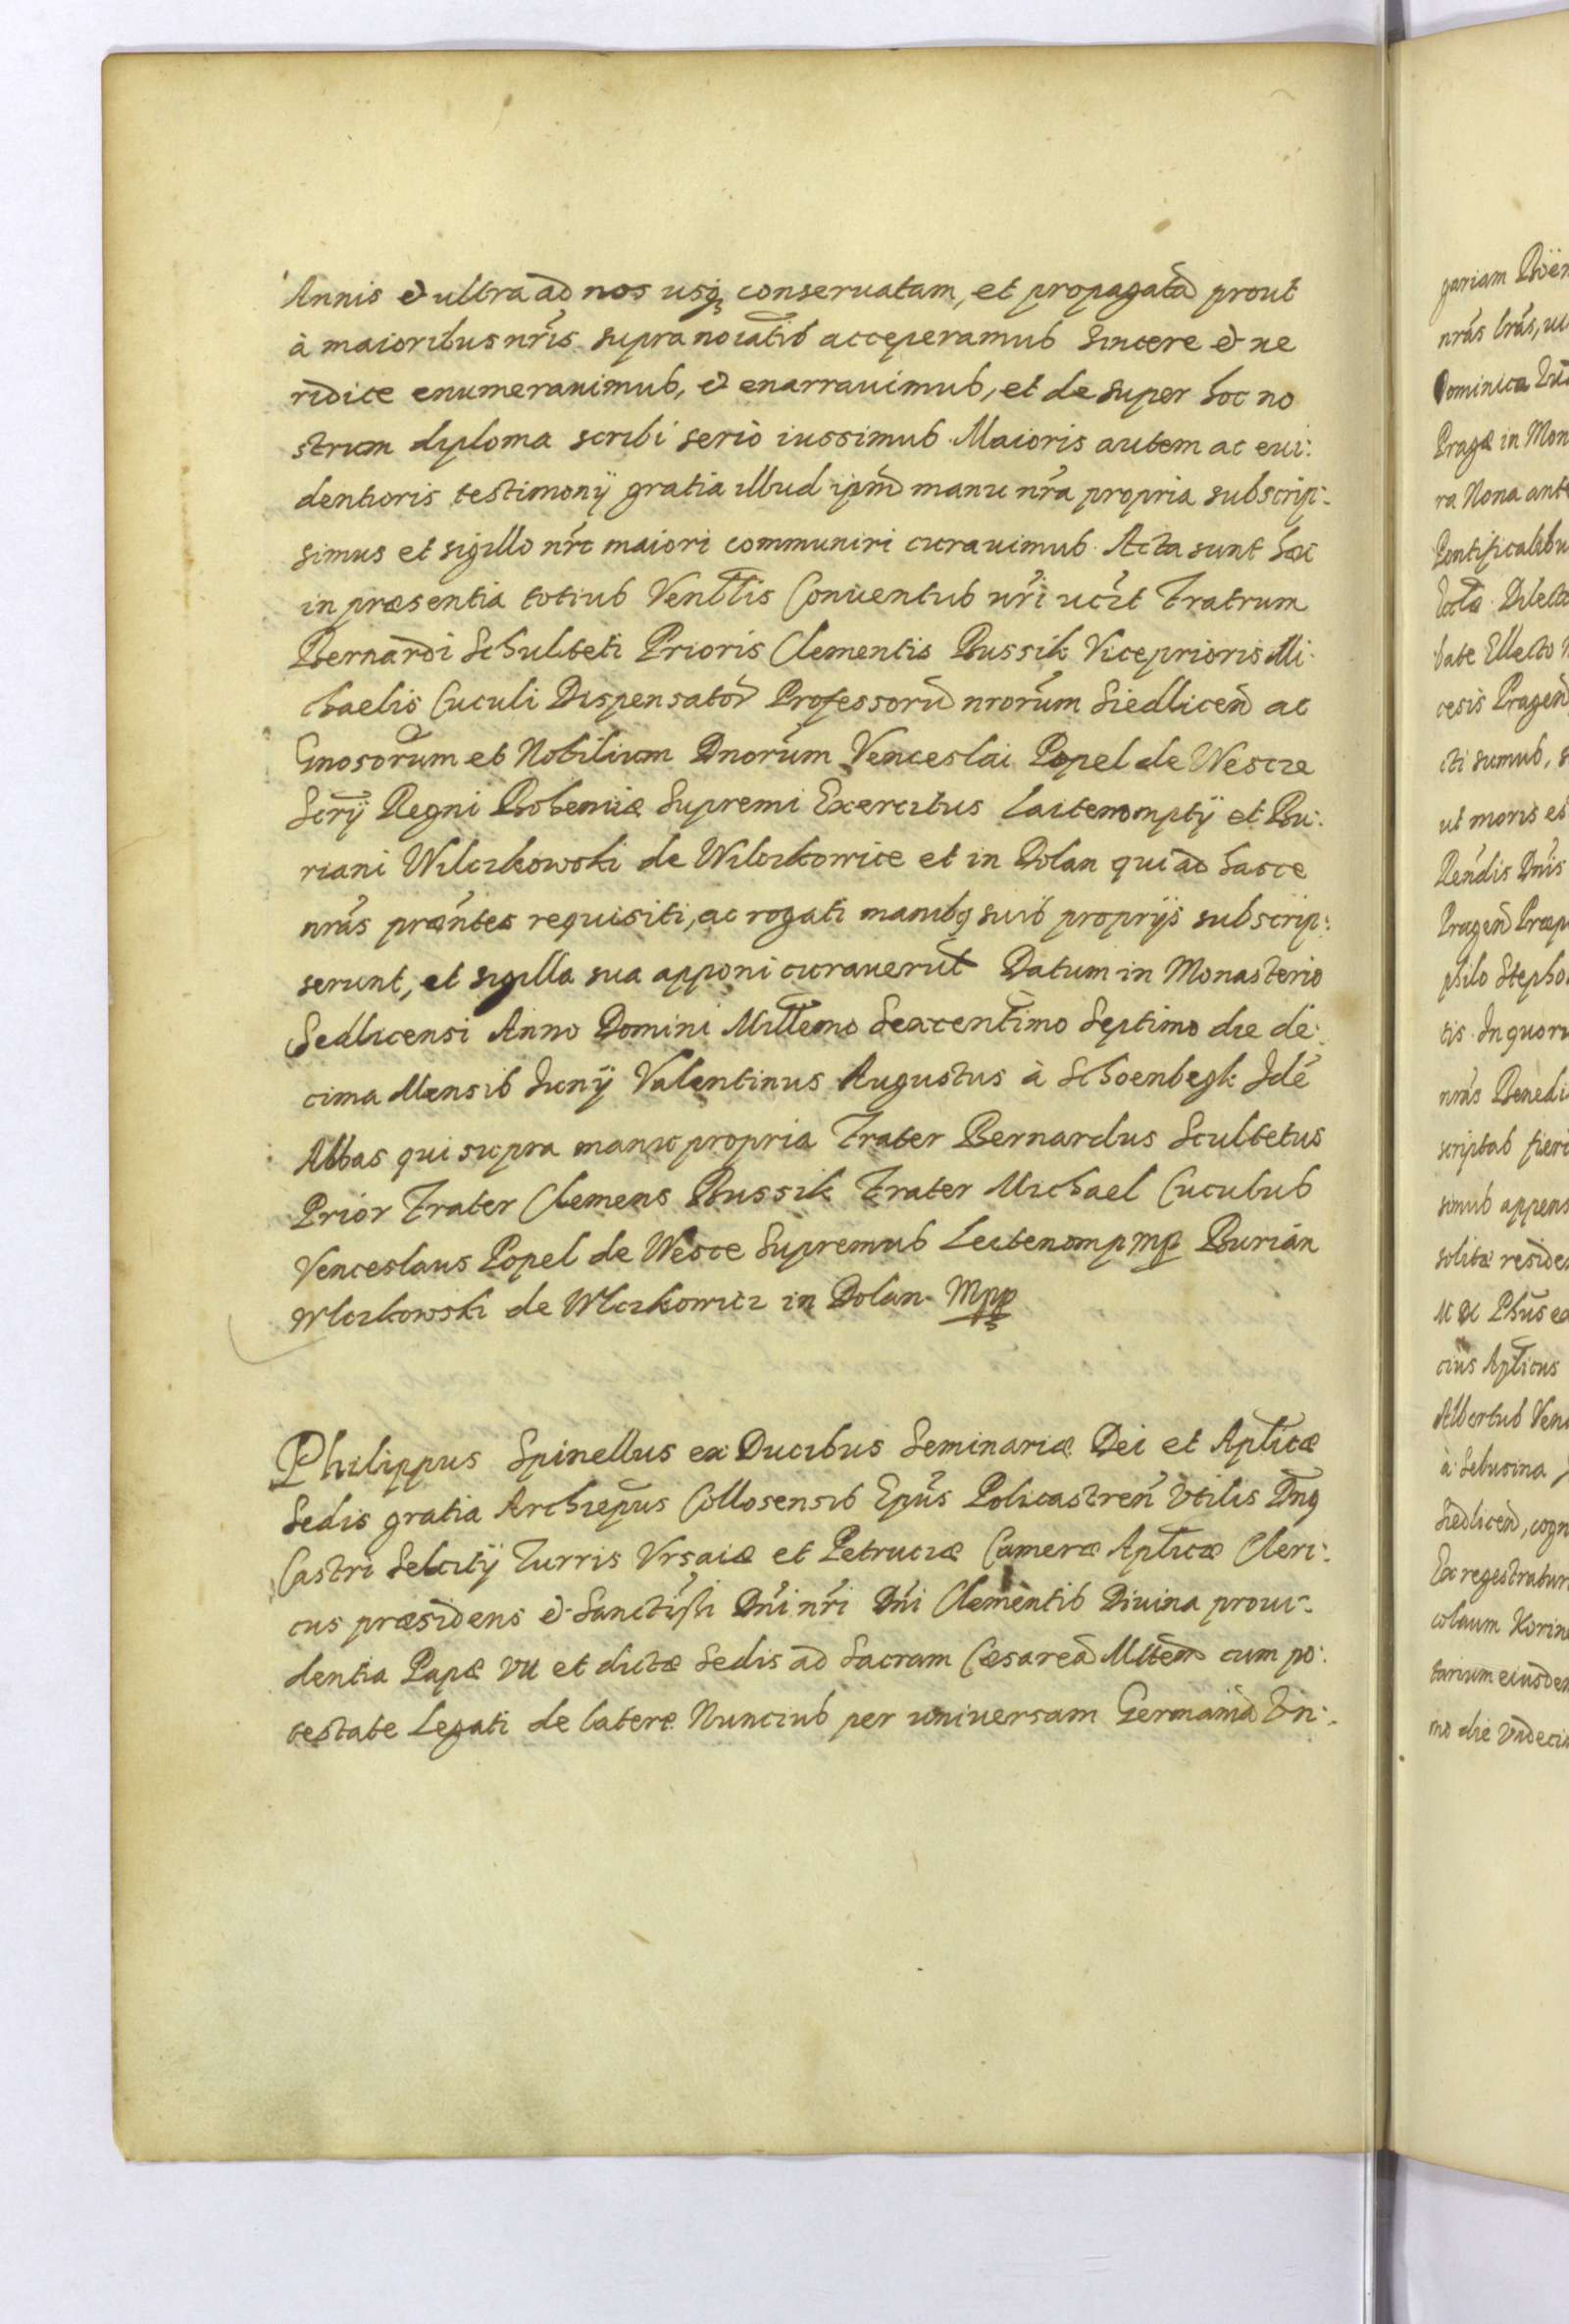 Annis & ultra ad nos usq; conseruatam, et propagatã prout
à maioribus nr̃is supra noĩatis acceperamus Sincere & ue
ridice enumerauimus, & enarrauimus, et de super hoc no
strum diploma scribi serio iussimus. Maioris autem ac eui:
dentioris testimonÿ gratia illud ipm̃ manu nr̃a propria subscrip:
simus et sigillo nr̃o maiori communiri curauimus. Acta sunt hæc
in præsentia totius Venĩlis Conuentus nr̃i uc̃it Fratrum
Bernardi Schulteti Prioris Clementis Bussik Viceprioris Mi:
chaelis Cuculi Dispensator̃ Professorũ nrorũm Siedliceñ ac
Gnosorũm et Nobilium Dnorũm Venceslai Popel de Wesce
Scrÿ Regni Bohemiæ Supremi Exercitus Laitenomptÿ et Bu:
riani Wilczkowski de Wilczkowice et in Dolan qui ad hasce
nrãs præñtes requisiti, ac rogati manibq suis proprÿs subscrip:
serunt, et sigilla sua apponi curauerũt Datum in Monasterio
Sedlicensi Anno Domini Millẽmo Sexcentĩmo Septimo die de:
cima Mensis Junÿ Valentinus Augustus à Schoenbegk Idẽ
Abbas qui supra manu propria Frater Bernardus Scultetus
Prior Frater Clemens Bussik Frater Michael Cuculus
Venceslaus Popel de Wesce Supremus Leitenomp mp Burian
Wlczkowski de Wlczkowicz in Dolan. Mpp
Philippus Spinellus ex Ducibus Seminariæ Dei et Apl̃icæ
Sedis gratia Archiep̃us Collosensis Ep̃us Policastreñ Vtilis Dñq
Castri Selcitÿ Turris Vrsaiæ et Petruciæ Cameræ Apl̃icæ Cleri:
cus præsidens & Sanctis̃si Dñi nr̃i Dñi Clementis Diuina proui:
dentia Papæ VII et dictæ Sedis ad Sacram Cæsareã Mttem̃ cum po:
testate Legati de latere Nuncius per uniuersam Germaniã Vn:
gariam
nrãs lrãs,
Dominica
Pragæ in Mon
ra Nona ante
Pontificalibu
bate Ellecto
cesis Prageñ
cti sumus, s
ut moris es
Reñdis Dñis
Prageñ Præp
philo Stepho
tis. In quoru
nrãs Benedi
scriptas fieri
simus appens
solitæ reside
cius Apl̃icus
Albertus Ven
à Lebusina
Siedliceñ, cogn
Ex regestratur
colaum Korin
tarium eiusdem
mo die Vndeci